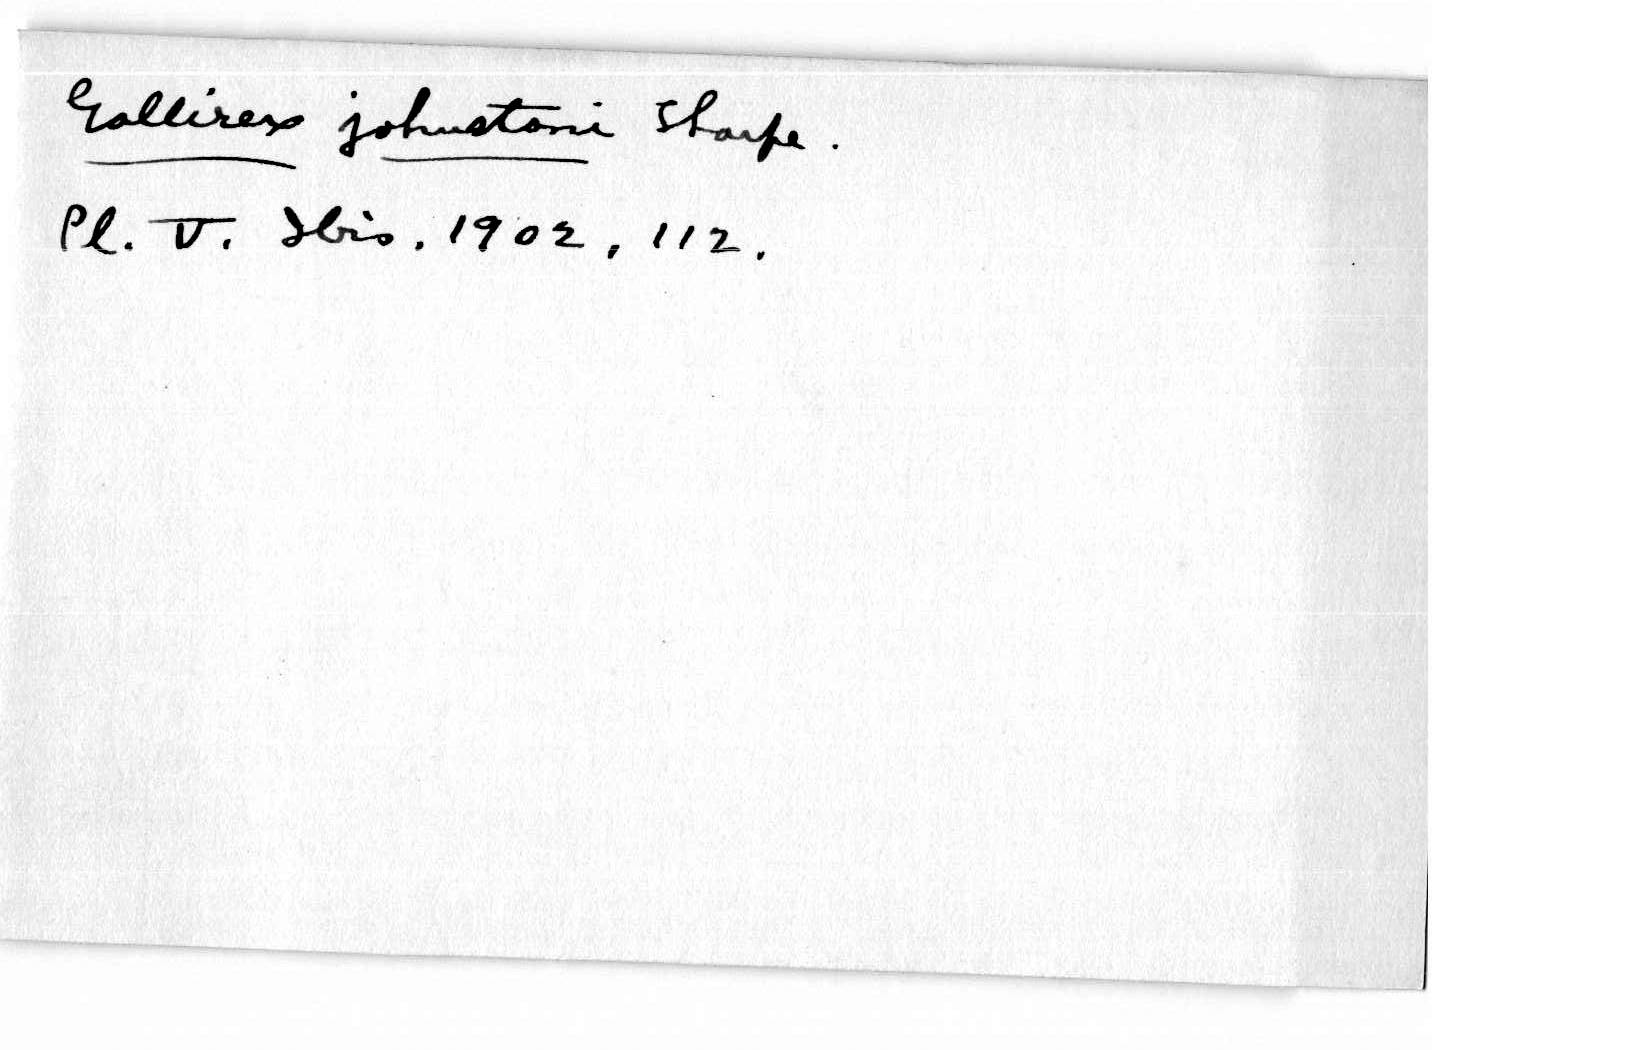 Gallirex johnstoni Sharpe.
Pl. V. Ibis. 1902, 112.